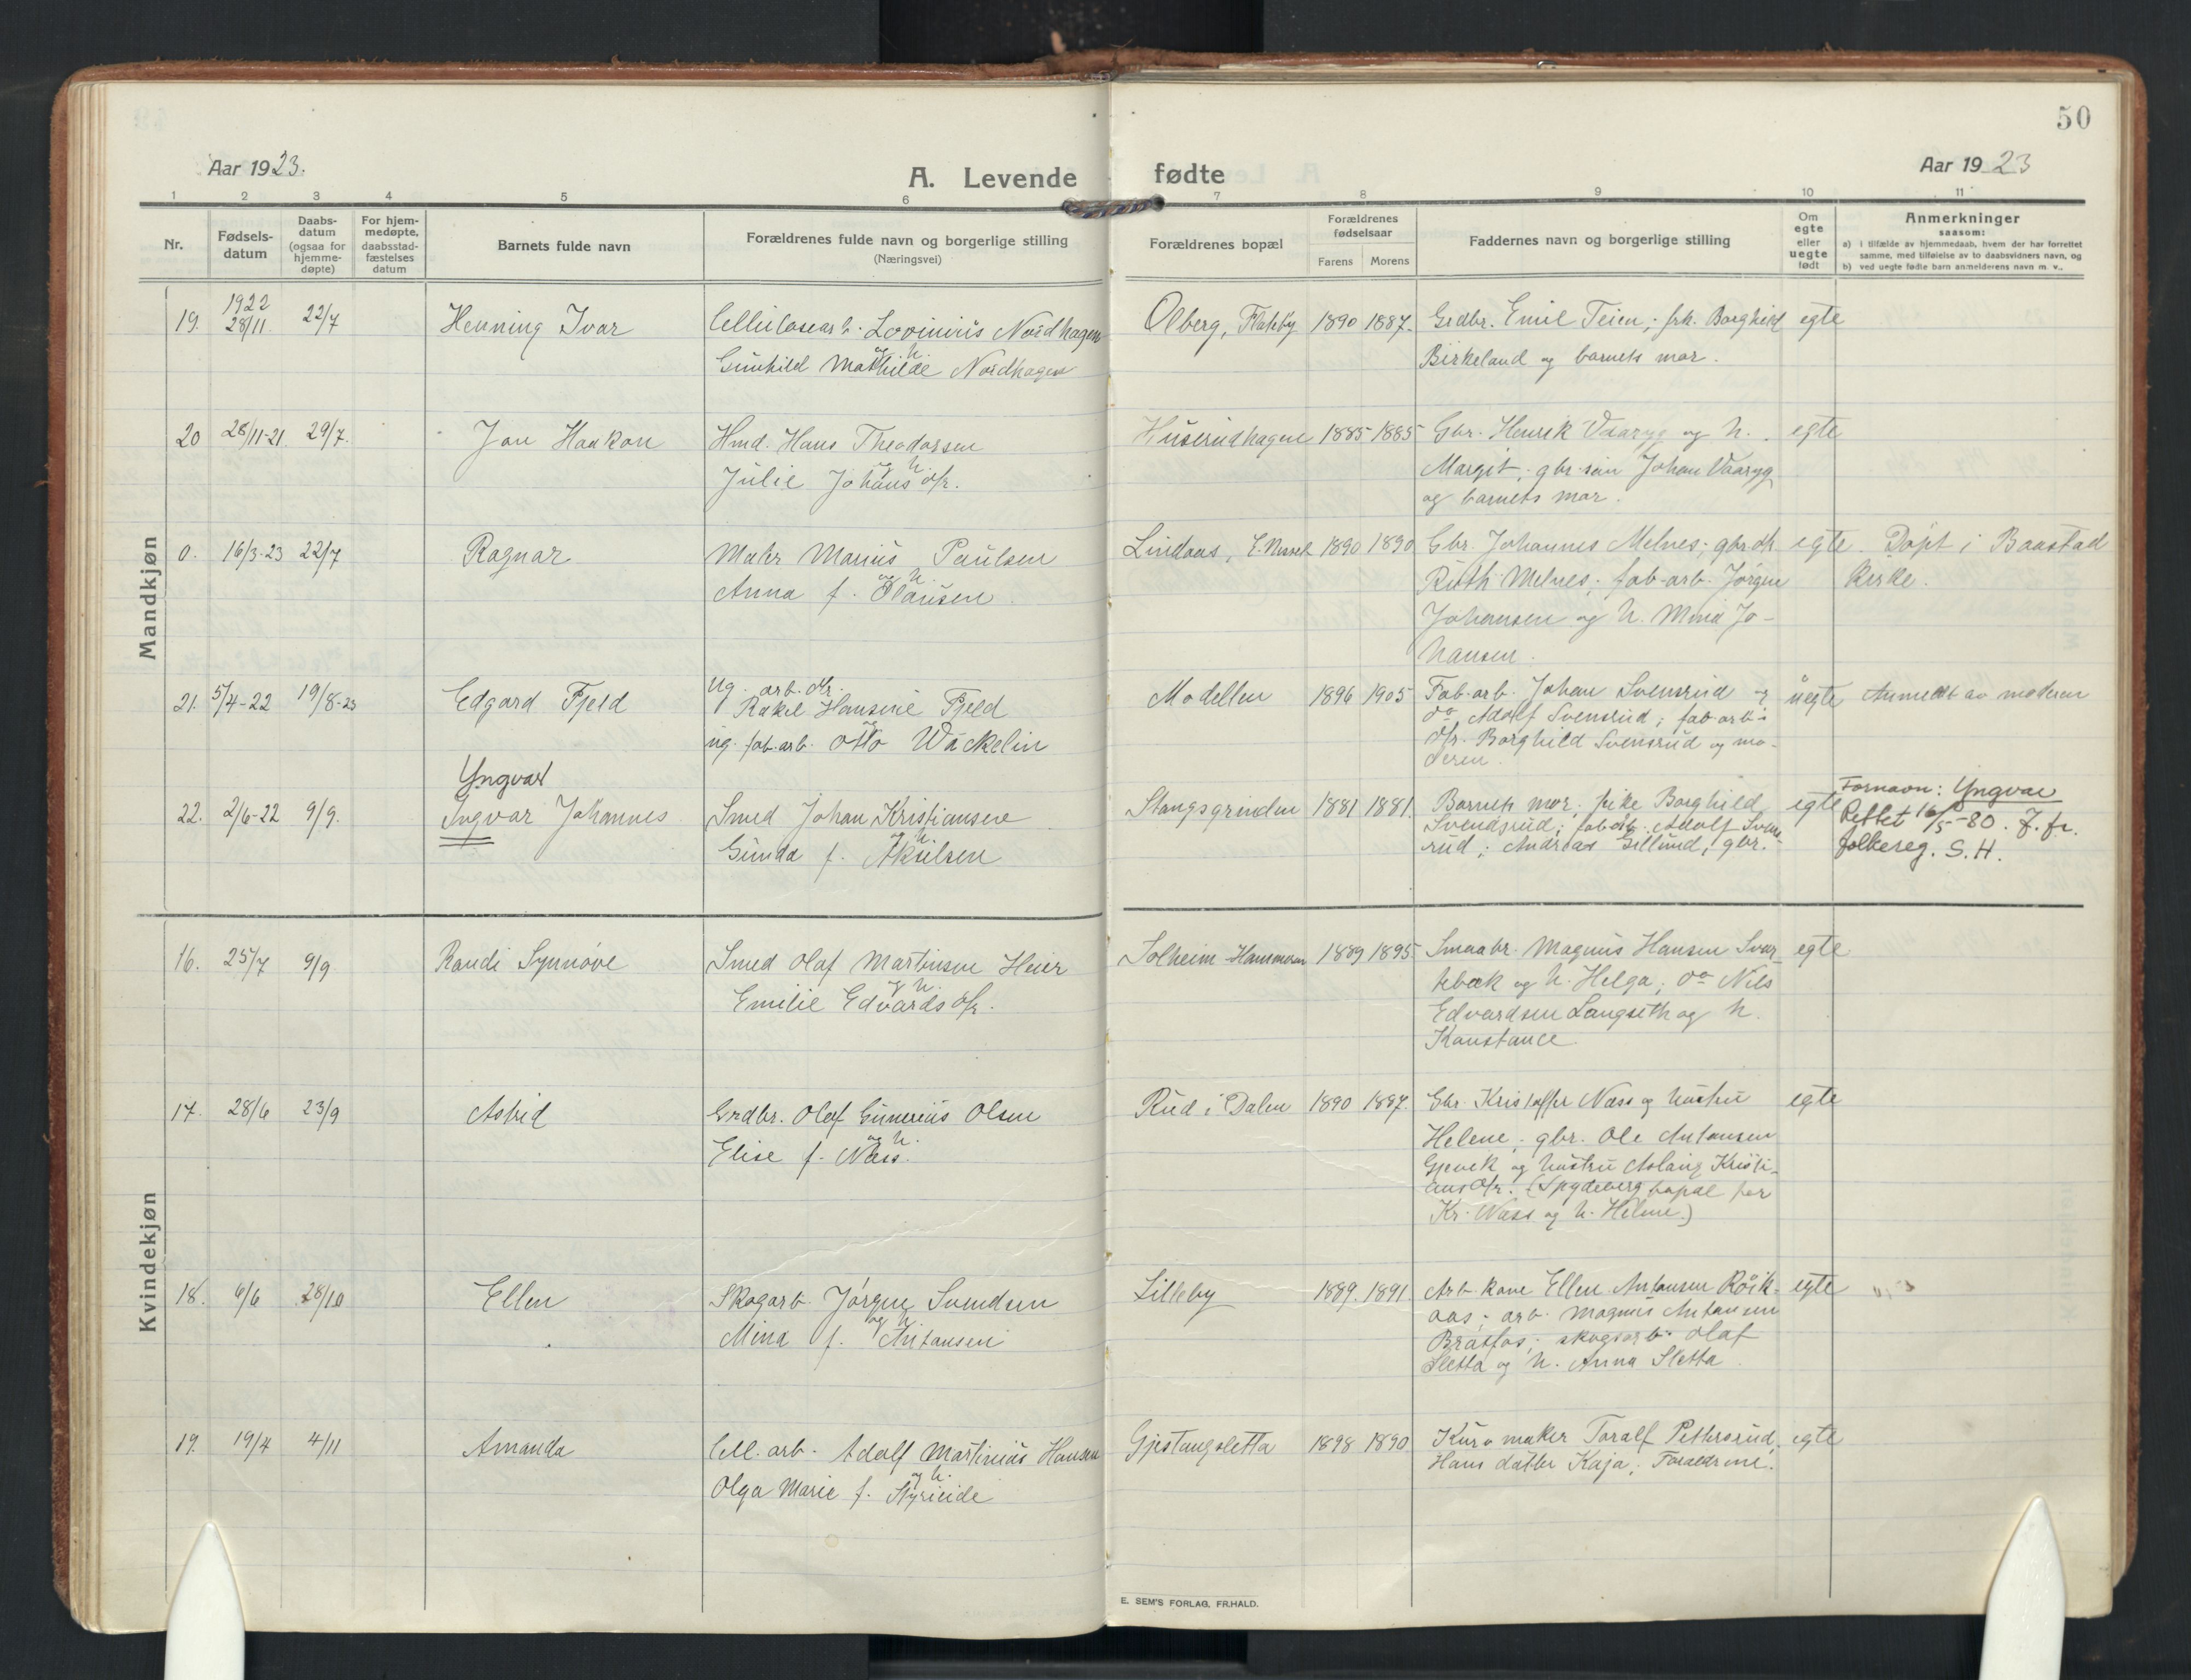 50
Aar 1923.
A. Levende fødte
Aar 1923
1 2 3 4 5 6 7 8 9 10 11
Nr.
Fødsels-
datum
Daabs-
datum
(ogsaa for
hjemme-
døpte)
For hjem-
medøpte,
daabsstad-
fæstelses
datum
Barnets fulde navn
Forældrenes fulde navn og borgerlige stilling
(Næringsvei)
Forældrenes bopæl
Forældrenes
fødselsaar
Farens Morens
Faddernes navn og borgerlige stilling
Om
egte
eller
uegte
født
Anmerkninger
saasom:
a) i tilfælde av hjemmedaab, hvem der har forrettet
samme, med tilføielse av to daabsvidners navn, og
b) ved uegte fødte barn anmelderens navn m. v.,
Mandkjøn
19. 1922 28/11. 22/7 Henning Ivar
Cellulosearb. Lovinius Nordhagen
og h.
Gunhild Mathilde Nordhagen
Olberg, Flateby 1890 1887.
Grdbr. Emil Teien; frk. Borghild
Birkeland og barnets mor.
egte
20 28/11-21. 29/7. Jon Haakon
Hmd. Hans Theodorsen
og h.
Julie Johansdtr.
Huserudhagen 1885 1885
Gbr. Henrik Vaaryg og h.
Margit; gbr.søn Johan Vaaryg
og barnets mor.
egte
0. 16/3-23 22/7 Ragnar
Malr Marius Paulsen
og h.
Anna f. Olausen.
Lindaas, 1890 1890
Gbr. Johannes Melnes; gbrdtr
Ruth Melnes; fab-arb. Jørgen
Johansen og h. Mina Jo-
hansen.
egte. Döpt i Baastad
Kirke.
21. 5/4-22 19/8-23 Edgard Fjeld
Ug. arb. dtr.
Rakel Hansine Fjeld
og
ug. fab.arb. Otto Wäckelin
Modellen 1896 1905
Fab.arb. Johan Svensrud og
do. Adolf Svensrud; fab.arb's
dtr. Borghild Svensrud og mo-
deren.
uegte Anmeldt av moderen
Yngvar
22. 2/6-22 9/9. Ingvar Johannes
Smed Johan Kristiansen
og h.
Gunda f. Akselsen
Stangsgrinden 1881 1881.
Barnets mor; pike Borghild
Svendsrud; fab.arb. Adolf Svens-
rud; Andreas Gillund, gbr.
egte
Fornavn: Yngvar
Rettet 16/5-80. J. fr.
folkereg. S.H.
Kvindekjøn
16. 25/7 9/9 Randi Synnöve
Smed Olaf Martinsen Heier
og h.
Emilie Edvardsdtr.
Solheim 1889 1895
Smaabr. Magnus Hansen Svar-
tebæk og h. Helga; do Nils
Edvardsen Langseth og h.
Konstance.
egte
17. 28/6 23/9 Astrid
Grdbr. Olaf Gunerius Olsen
og h.
Elise f. Næss.
Rud i Dalen 1890 1887.
Gbr. Kristoffer Næss og hustru
Helene; gbr. Ole Antonsen
Gjevik og hustru Aslaug Kristi-
ansdtr. (Spydeberg bopæl for
Kr. Næss og h. Helene.)
egte
18. 6/6 28/10 Ellen
Skogarb. Jørgen Svendsen
og h.
Mina f. Antonsen
Lilleby 1889. 1891
Arb. kone Ellen Antonsen Röik-
aas; arb. Magnus Antonsen
Braatfos; skogsarb. Olaf
Sletta og h. Anna Sletta.
egte
19. 19/4 4/11 Amanda
Cell. arb. Adolf Martinius Hansen
og h.
Olga Marie f.
Gjestangsletta 1898 1890
Kurvmaker Toralf Pettersrud,
Hans datter Kaja; Forældrene.
egte
E. SEM'S FORLAG, FR.HALD.